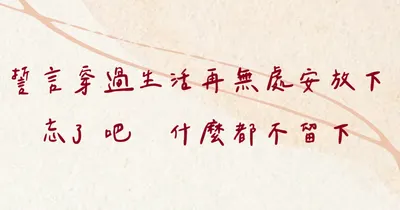 誓言穿過生活再無處安放下
忘了吧 什麼都不留下